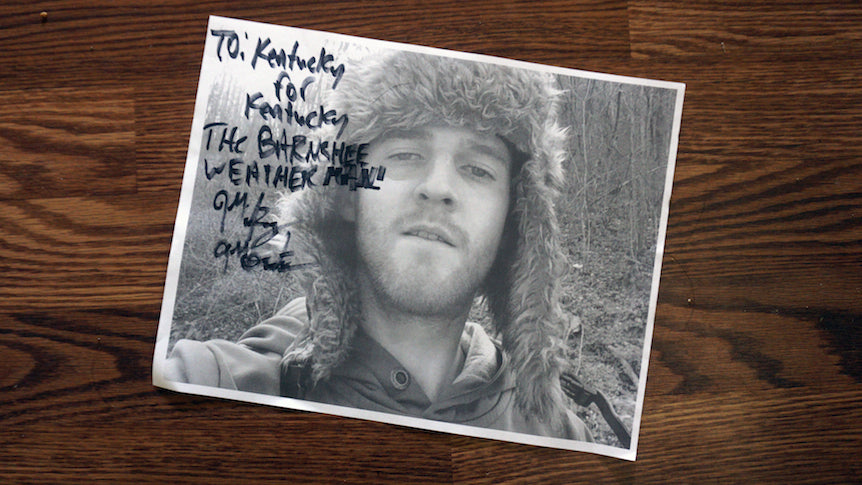 TO: Kentucky
for
Kentucky
THE BARNSHEE
WEATHER MAN"